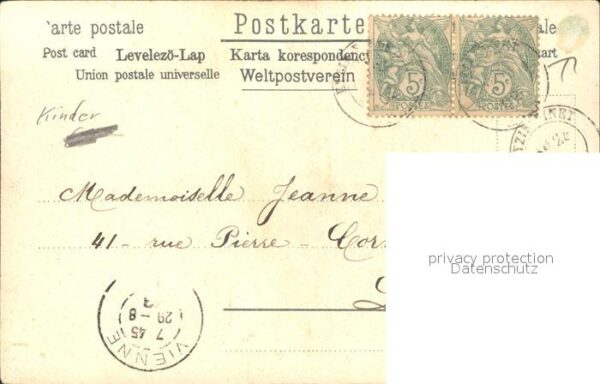 Carte postale
Postkarte
Post card Levelező-Lap Karta korespondency
Union postale universelle Weltpostverein
ale
kart
5 5
POSTES POSTES
Kinder
Mademoiselle Jeanne
41 - rue Pierre - Cor
privacy protection
Datenschutz
VIENNE
7 45
29 - 8